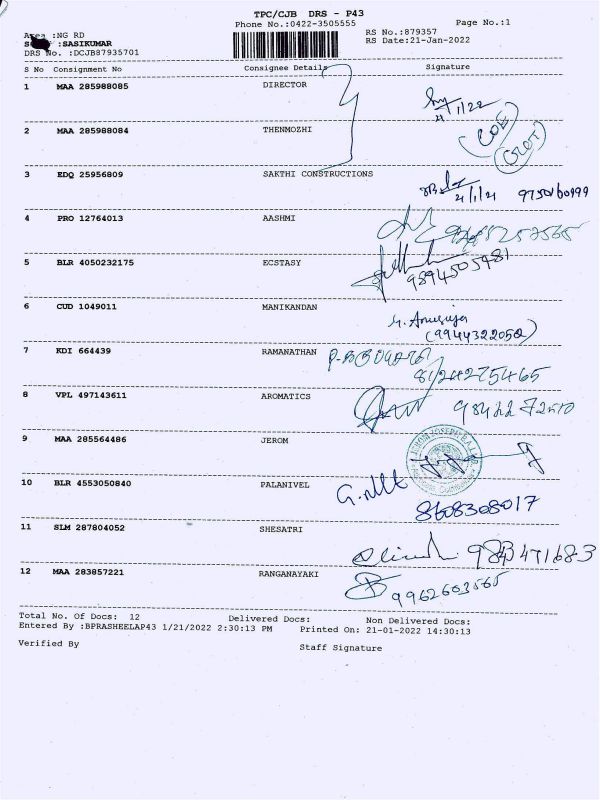 TPC/CJB DRS - P43
Phone No.:0422-3505555
Page No.:1
Area :NG RD
RS No.:879357
:SASIKUMAR
RS Date:21-Jan-2022
DRS No. :DCJB87935701
S No Consignment No Consignee Details Signature
1 MAA 285988085 DIRECTOR
21/1/22
2 MAA 285988084 THENMOZHI
COE
3 EDQ 25956809 SAKTHI CONSTRUCTIONS
21/1/21 9750160999
4 PRO 12764013 AASHMI
5 BLR 4050232175 ECSTASY
9894505981
6 CUD 1049011 MANIKANDAN
(9944322052)
7 KDI 664439 RAMANATHAN
8124275465
8 VPL 497143611 AROMATICS
9 MAA 285564486 JEROM
10 BLR 4553050840 PALANIVEL
8608308017
11 SLM 287804052 SHESATRI
12 MAA 283857221 RANGANAYAKI
9962603565
Total No. Of Docs: 12 Delivered Docs: Non Delivered Docs:
Entered By :BPRASHEELAP43 1/21/2022 2:30:13 PM Printed On: 21-01-2022 14:30:13
Verified By Staff Signature